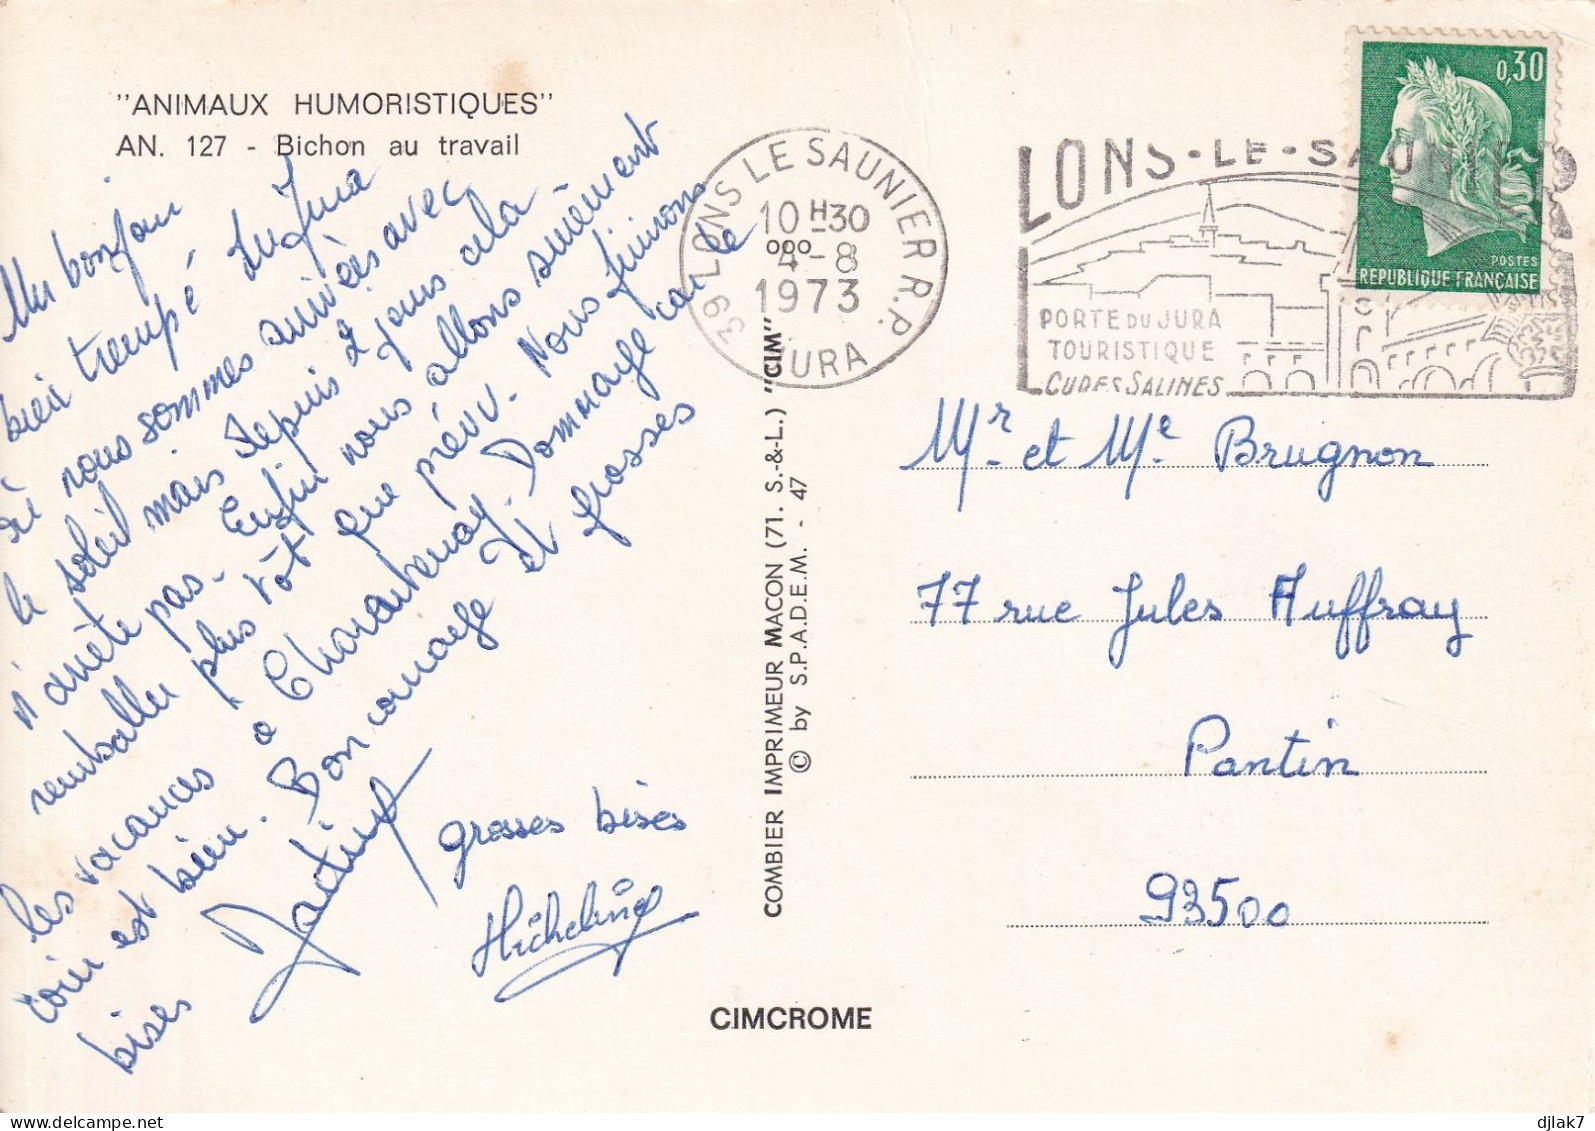 "ANIMAUX HUMORISTIQUES"
AN. 127 - Bichon au travail
Un bonjour
bien trempé du Jura
où nous sommes arrivés avec
le soleil mais depuis 2 jours cela
n'arrête pas. Enfin nous allons sûrement
remballer plus tôt que prévu. Nous finirons
les vacances à Charentenay. Dommage car le
coin est bien. Bon courage et grosses
bises
grosses bises
Micheline
39 LONS LE SAUNIER R.P.
10 H30
4-8
1973
JURA
LONS-LE-SAUNIER
PORTE DU JURA
TOURISTIQUE
CURES SALINES
0,30
POSTES
REPUBLIQUE FRANÇAISE
COMBIER IMPRIMEUR MACON (71. S.-&-L.) "CIM"
© by S.P.A.D.E.M. - 47
Mr et Me Brugnon
77 rue Jules Auffray
Pantin
93500
CIMCROME
djlak7